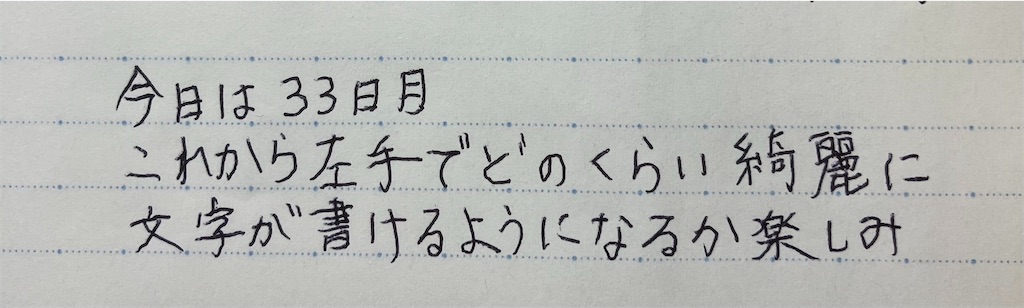 今日は33日目
これから左手でどのくらい綺麗に
文字が書けるようになるか楽しみ